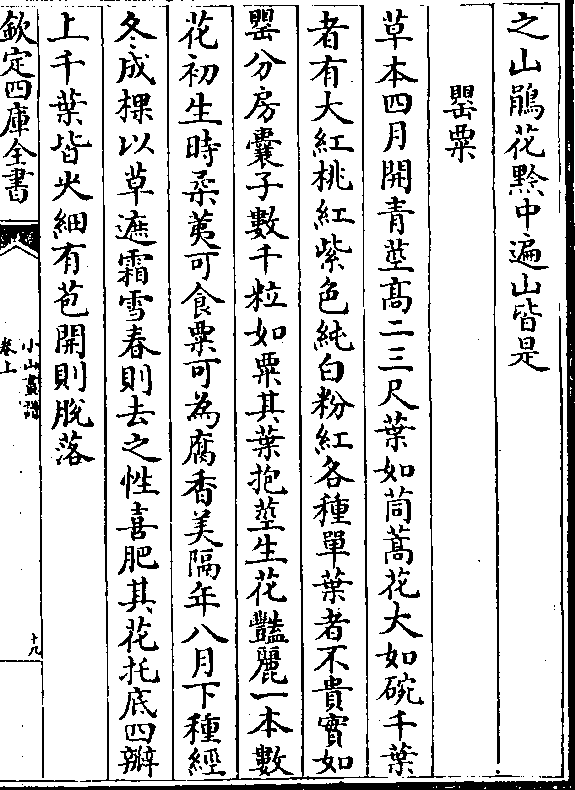 之山鵑花黔中遍山皆是
罌粟
草本四月開青莖高二三尺葉如茼蒿花大如碗千葉
者有大紅桃紅紫色純白粉紅各種單葉者不貴實如
罌分房囊子數千粒如粟其葉抱莖生花豔麗一本數
花初生時柔荑可食粟可為腐香美隔年八月下種經
冬成棵以草遮霜雪春則去之性喜肥其花托底四瓣
上千葉皆火細有苞開則脫落
欽定四庫全書
小山畫譜
卷上
十九